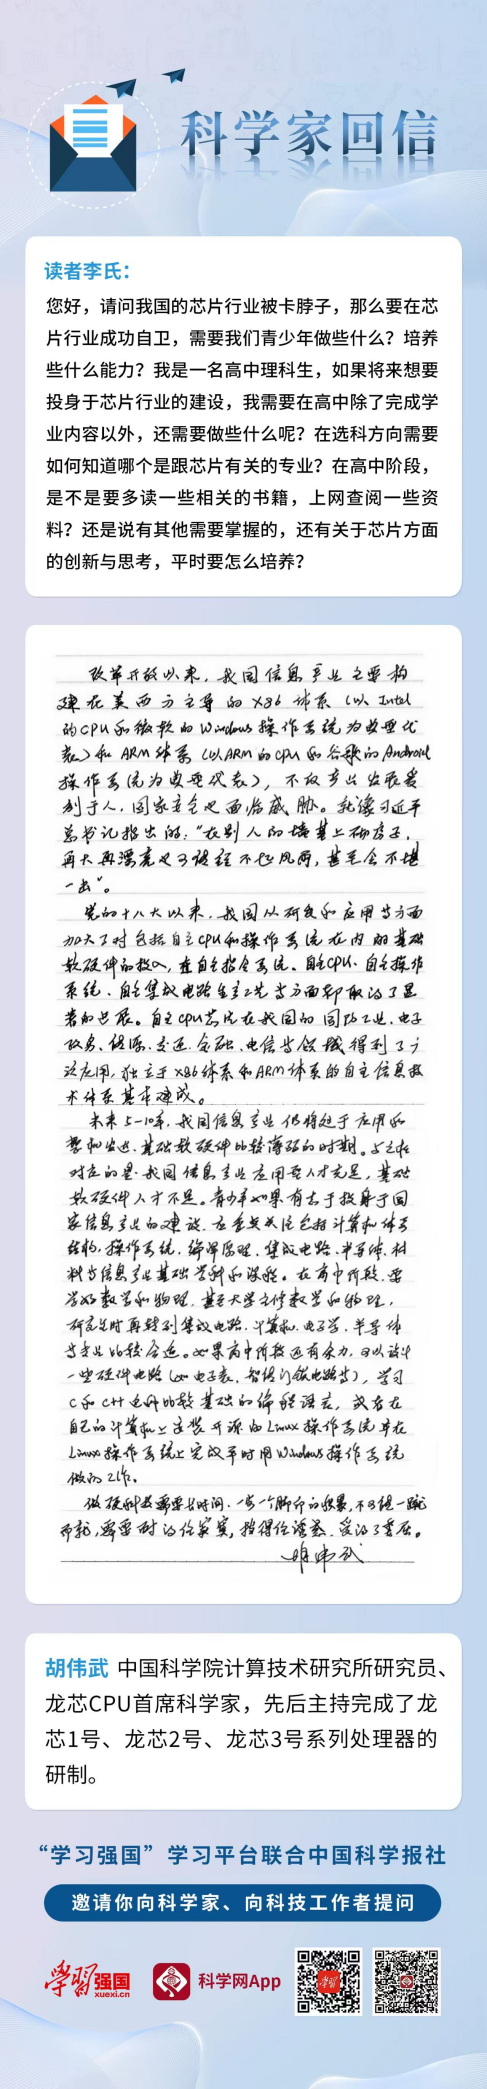 科学家回信
读者李氏：
您好，请问我国的芯片行业被卡脖子，那么要在芯
片行业成功自卫，需要我们青少年做些什么？培养
些什么能力？我是一名高中理科生，如果将来想要
投身于芯片行业的建设，我需要在高中除了完成学
业内容以外，还需要做些什么呢？在选科方向需要
如何知道哪个是跟芯片有关的专业？在高中阶段，
是不是要多读一些相关的书籍，上网查阅一些资
料？还是说有其他需要掌握的，还有关于芯片方面
的创新与思考，平时要怎么培养？
改革开放以来，我国信息产业主要构
建在美西方主导的X86体系（以Intel
的CPU和微软的Windows操作系统为典型代
表）和ARM体系（以ARM的CPU和谷歌的Android
操作系统为典型代表），不仅产业发展受
制于人，国家安全也面临威胁。就像习近平
总书记指出的："在别人的墙基上砌房子，
再大再漂亮也可能经不起风雨，甚至会不堪
一击"。
党的十八大以来，我国从研发和应用等方面
加大了对包括自主CPU和操作系统在内的基础
软硬件的投入，在自主指令系统、自主CPU、自主操作
系统、自主集成电路生产工艺等方面都取得了显
著的进展。自主CPU芯片在我国的国防工业、电子
政务、能源、交通、金融、电信等领域得到了广
泛应用，独立于X86体系和ARM体系的自主信息技
术体系基本建成。
未来5-10年，我国信息产业仍将处于应用和
整机发达、基础软硬件比较薄弱的时期。与之相
对应的是，我国信息产业应用型人才充足，基础
软硬件人才不足。青少年如果有志于投身于国
家信息产业的建设，应重点关注包括计算机体系
结构、操作系统、编译原理、集成电路、半导体、材
料等信息产业基础学科和课程。在高中阶段，要
学好数学和物理，甚至大学主修数学和物理，
研究生时再转到集成电路、计算机、电子学、半导体
等专业比较合适。如果高中阶段还有余力，可以设计
一些硬件电路（如电子表、智能门锁电路等），学习
C和C++这种比较基础的编程语言，或者在
自己的计算机上安装开源的Linux操作系统并在
Linux操作系统上完成平时用Windows操作系统
做的工作。
做硬科技需要长时间、一步一个脚印的积累，不可能一蹴
而就，需要耐得住寂寞，挡得住诱惑，受得了委屈。
胡伟武
胡伟武 中国科学院计算技术研究所研究员、
龙芯CPU首席科学家，先后主持完成了龙
芯1号、龙芯2号、龙芯3号系列处理器的
研制。
“学习强国”学习平台联合中国科学报社
邀请你向科学家、向科技工作者提问
学习强国
xuexi.cn
科学网App